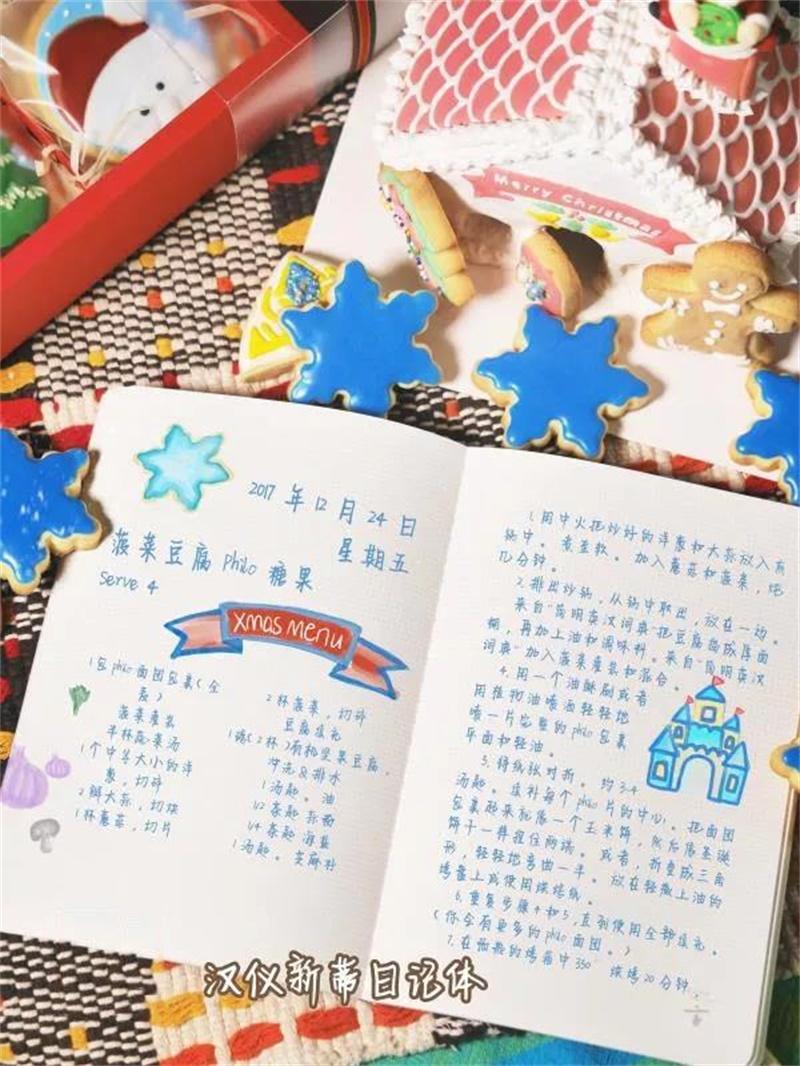 Merry Christmas
2017 年 12 月 24 日
星期五
菠菜豆腐 Philo 糖果
Serve 4
XMAS MENU
1包 philo 面团包裹(全
麦)
菠菜産装
半杯蔬菜汤
1个中等大小的洋
葱,切碎
2瓣大蒜,切块
1杯蘑菇,切片
2杯菠菜,切碎
豆腐填充
1端(2杯)有机坚果豆腐,
冲洗&排水
1汤匙。油
1/2 茶匙
1/4 茶匙 海盐
1汤匙。芙麻籽
1.用中火把炒好的洋葱和大蒜放入有
锅中。煮至软。加入蘑菇和菠菜,炖
几分钟。
2.排出炒锅,从锅中取出,放在一边。
来自"简明英汉词典"把豆腐捣成厚面
糊,再加上油和调味料。来自"简明英汉
词典"加入菠菜産装和混合。
4.用一个油酥刷或者
用植物油喷洒轻轻地
喷一片完整的philo包裹
平面和轻油。
5.将纸张对折。约3-4
汤匙。填补每个philo片的中心。把面团
包裹起来就像一个玉米饼,然后像圣诞
饼干一样捏住两端。或者,折叠成三角
形,轻轻地弯曲一半。放在轻微上油的
烤盘上或使用烘焙纸。
6.重复步骤4和5,直到使用全部填充。
(你会有更多的philo面团。)
7.在预热的烤箱中350° 烘烤20分钟,
汉仪新蒂日记体